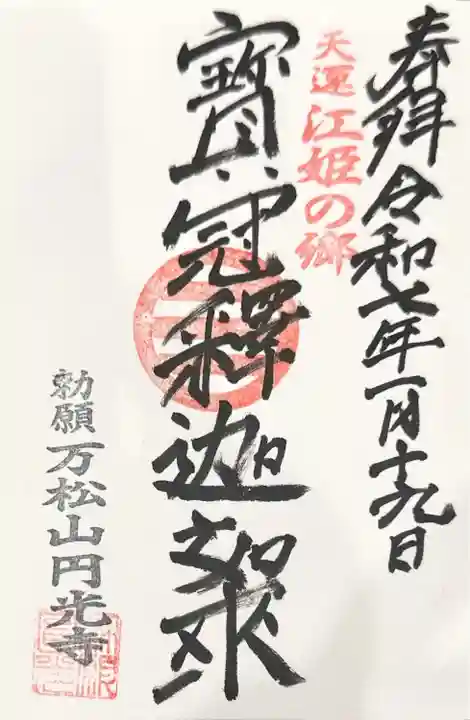 奉拝 令和七年一月十九日
天運 江姫の郷
寶冠釋迦如来
勅願 万松山円光寺